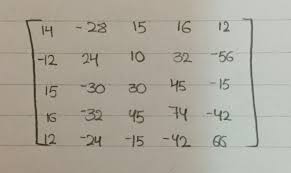 14 -28 15 16 12
-12 24 10 32 -56
15 -30 30 45 -15
16 -32 45 74 -42
12 -24 -15 -42 66